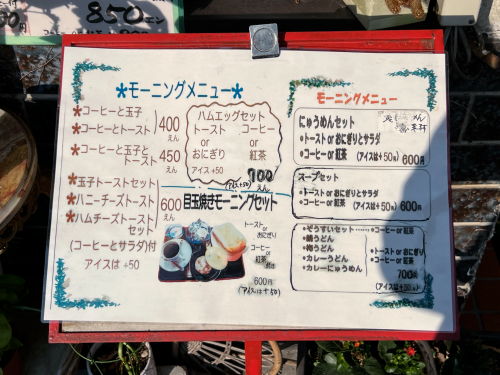 850エン
*モーニングメニュー*
*コーヒーと玉子
*コーヒーとトースト
400えん
*コーヒーと玉子とトースト
450えん
*玉子トーストセット
*ハニーチーズトースト
*ハムチーズトーストセット
600えん
(コーヒーとサラダ)付
アイスは +50
ハムエッグセット
トースト コーヒー
or or
おにぎり 紅茶
アイス +50
700えん
(アイス+50)
目玉焼きモーニングセット
トースト
or
おにぎり
コーヒー
or
紅茶
600円
(アイスは+50)
モーニングメニュー
にゅうめんセット
・トースト or おにぎりとサラダ
・コーヒー or 紅茶 (アイスは+50円) 600円
スープセット
・トースト or おにぎりとサラダ
・コーヒー or 紅茶 (アイスは+50円) 600円
・ぞうすいセット……・コーヒー or 紅茶
・鍋うどん
・梅うどん
・カレーうどん
・カレーにゅうめん
・トースト or おにぎり
・コーヒー or 紅茶
700円
(アイスは+50円)